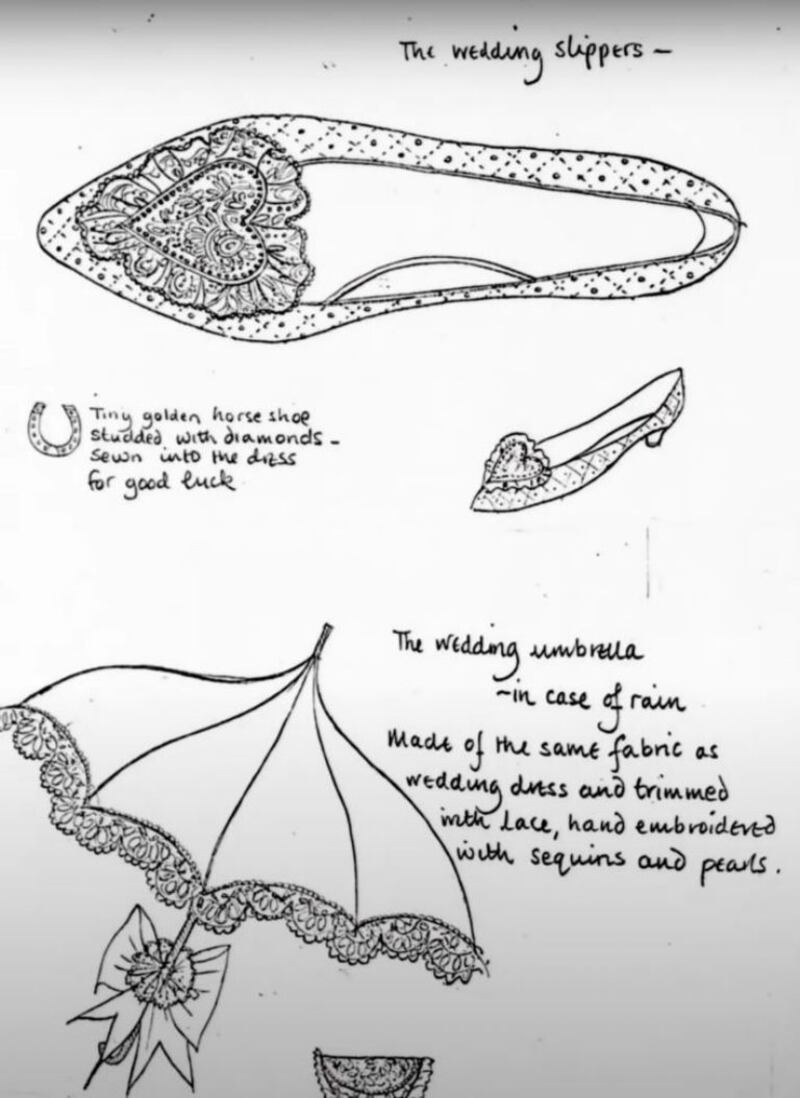 The wedding slippers –
Tiny golden horse shoe
studded with diamonds –
sewn into the dress
for good luck
The wedding umbrella
– in case of rain
Made of the same fabric as
wedding dress and trimmed
with lace, hand embroidered
with sequins and pearls.